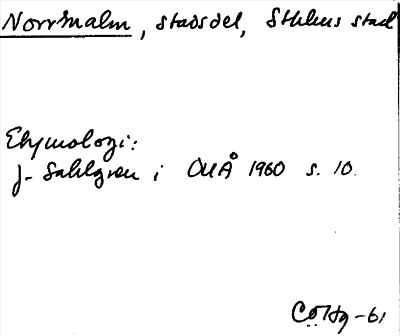 Norrmalm, stadsdel, Sthlms stad
Etymologi:
J. Sahlgren i OUÅ 1960 s. 10.
CÖHg-61